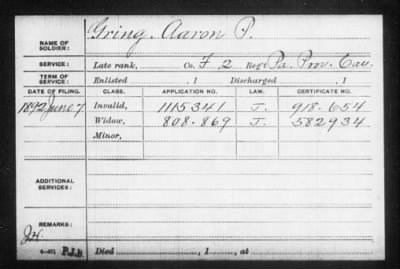 NAME OF SOLDIER: Gring, Aaron P.
SERVICE: Late rank, Co. F 2 Reg't Pa. Prov. Cav.
TERM OF SERVICE: Enlisted , 1 Discharged , 1
DATE OF FILING. CLASS. APPLICATION NO. LAW. CERTIFICATE NO.
1892 June 7 Invalid, 1115341 J. 918.654
Widow, 808.869 J. 582934
Minor,
ADDITIONAL SERVICES:
REMARKS:
P.J.B. Died , 1 , at